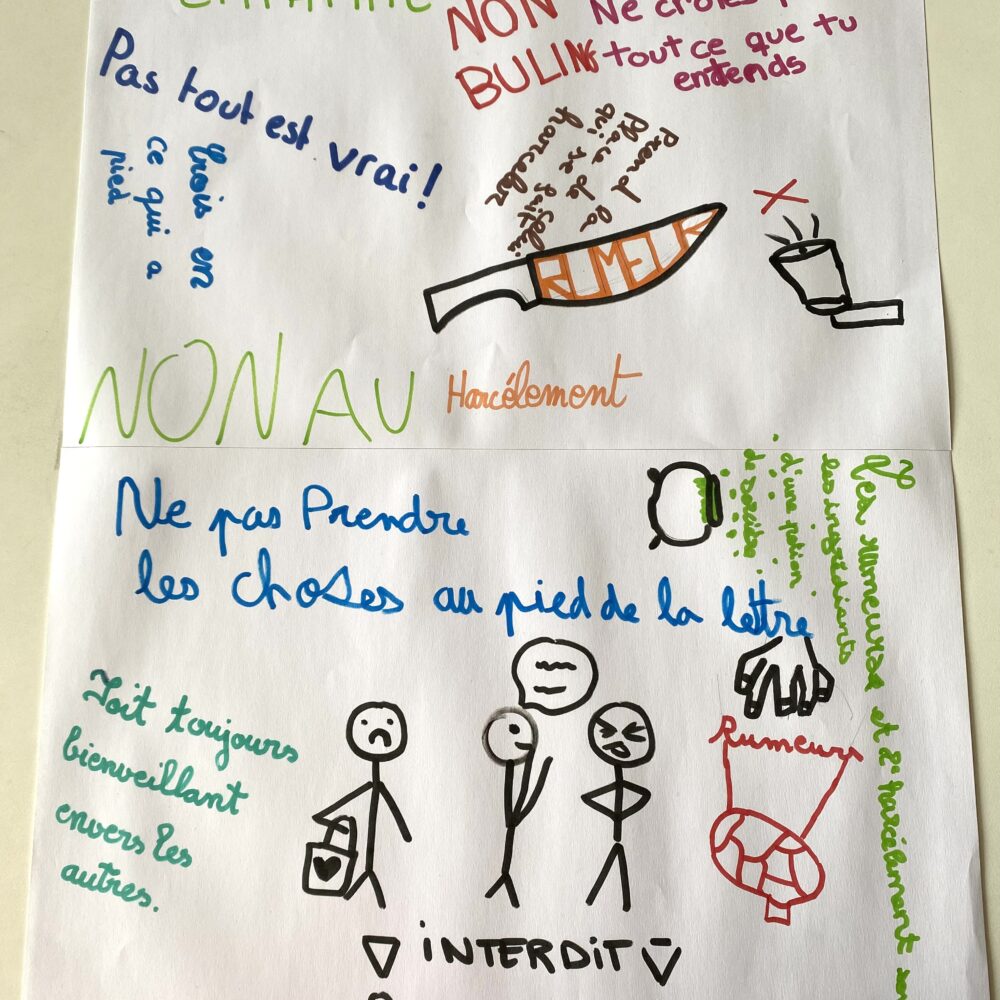 NON
BULING
Ne crois
tout ce que tu
entends
Pas tout est vrai!
Crois en
ce qui a
pied
Prend la
place de celui
qui se fait
harceler
RUMEUR
NON AU Harcélement
Ne pas Prendre
les choses au pied de la lettre
Les rumeurs et l'harcélement
les ingrédients
d'une potion
de sorcière
Soit toujours
bienveillant
envers les
autres.
Rumeurs
iNTERDiT